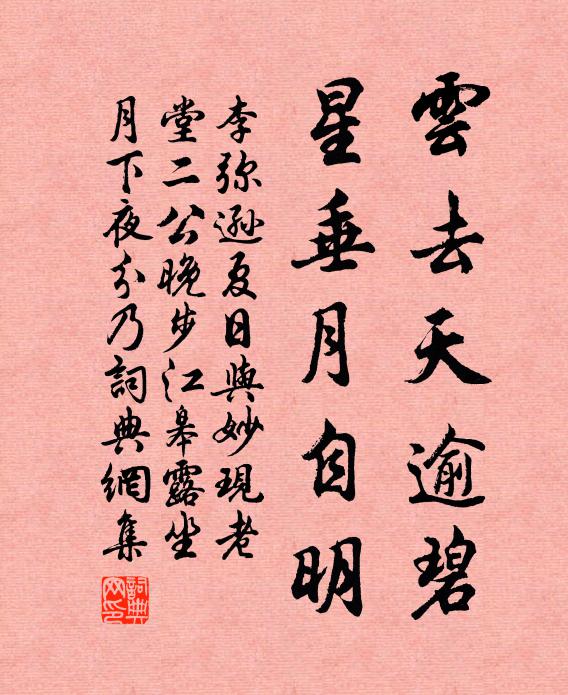 雲去天逾碧
星垂月自明
李弥遜夏日與妙現老
堂二公晚步江皋露坐
月下夜分乃詞典網集
詞典
网印